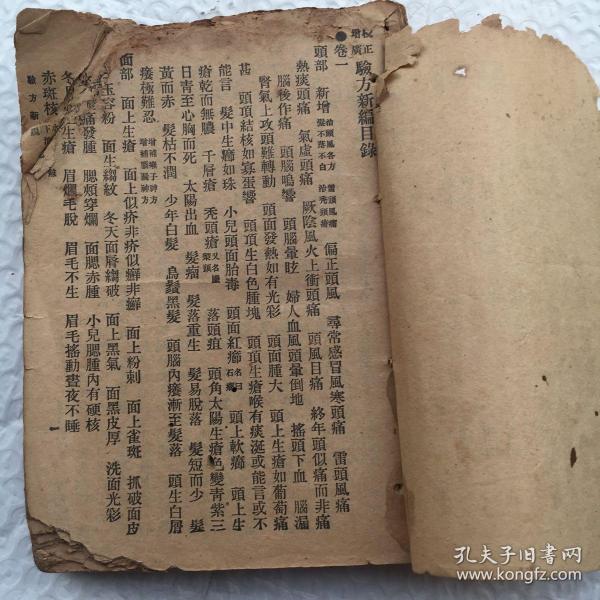 校正增廣驗方新編目錄
卷一
頭部 新增 治頭風各方 雷頭風痛 髮不落不白 治禿頭瘡 偏正頭風 尋常感冒風寒頭痛 雷頭風痛
熱痰頭痛 氣虛頭痛 厥陰風火上衝頭痛 頭風目痛 終年頭似痛而非痛
腦後作痛 頭腦鳴響 頭腦暈眩 婦人血風頭暈倒地 搖頭下血 腦漏
腎氣上攻頭難轉動 頭面發熱如有光彩 頭面腫大 頭上生瘡如葡萄痛
甚 頭項結核如寡蛋響 頭項生白色腫塊 頭項生瘡喉有痰涎或能言或不
能言 髮中生癤如珠 小兒頭面胎毒 頭面紅癤 名曰石癤 頭上軟癤 頭上生
瘡乾而無膿 千層瘡 禿頭瘡 又名臘梨頭 落頭疽 頭角太陽生瘡色變青紫三
日青至心胸而死 太陽出血 髮瘤 髮落重生 髮易脫落 髮短而少 髮
黃而赤 髮枯不潤 少年白髮 烏鬚黑髮 頭腦內癢漸至髮落 頭生白屑
癢極難忍 增補瘰子神方 增補腦漏神方
面部 面上生瘡 面上似疥非疥似癬非癬 面上粉刺 面上雀斑 抓破面皮
玉容粉 面生縐紋 冬天面唇縐破 面上黑氣 面黑皮厚 洗面光彩
痛發腫 腮頰穿爛 面腮赤腫 小兒腮腫內有硬核
冬月 生瘡 眉癢毛脫 眉毛不生 眉毛搖動晝夜不睡
赤斑核
驗方新編
一
孔夫子旧书网
www.kongfz.com